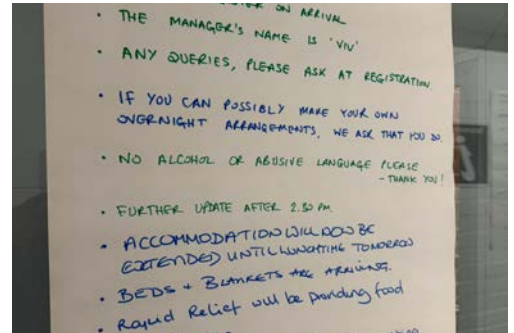 ON ARRIVAL
• THE MANAGER'S NAME IS 'VIV'
• ANY QUERIES, PLEASE ASK AT REGISTRATION
• IF YOU CAN POSSIBLY MAKE YOUR OWN
OVERNIGHT ARRANGEMENTS, WE ASK THAT YOU DO.
• NO ALCOHOL OR ABUSIVE LANGUAGE PLEASE
- THANK YOU!
• FURTHER UPDATE AFTER 2.30 PM.
• ACCOMMODATION WILL NOW BE
EXTENDED UNTIL LUNCHTIME TOMORROW
• BEDS + BLANKETS ARE ARRIVING.
• Rapid Relief will be providing food